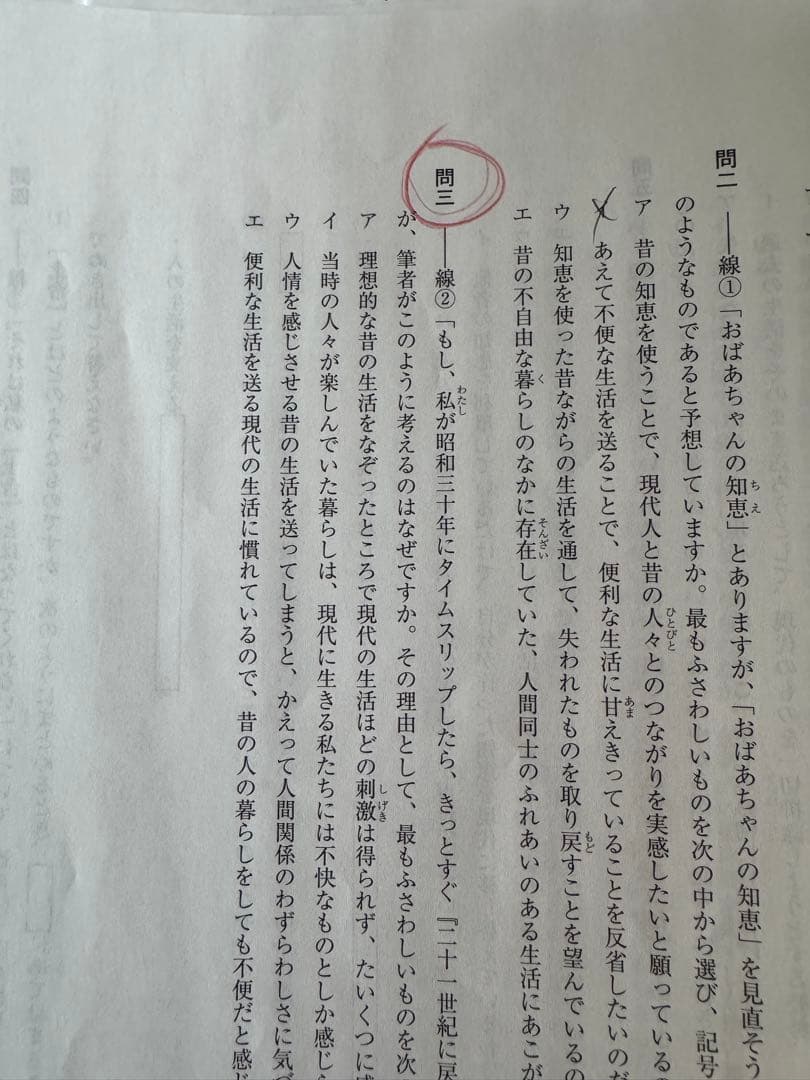 問二 ――線①「おばあちゃんの知恵」とありますが、「おばあちゃんの知恵」を見直そう
のようなものであると予想していますか。最もふさわしいものを次の中から選び、記号
ア 昔の知恵を使うことで、現代人と昔の人々とのつながりを実感したいと願っている
イ あえて不便な生活を送ることで、便利な生活に甘えきっていることを反省したいのだ
ウ 知恵を使った昔ながらの生活を通して、失われたものを取り戻すことを望んでいるの
エ 昔の不自由な暮らしのなかに存在していた、人間同士のふれあいのある生活にあこが
問三 ――線②「もし、私が昭和三十年にタイムスリップしたら、きっとすぐ『二十一世紀に戻
が、筆者がこのように考えるのはなぜですか。その理由として、最もふさわしいものを次
ア 理想的な昔の生活をなぞったところで現代の生活ほどの刺激は得られず、たいくつに感
イ 当時の人々が楽しんでいた暮らしは、現代に生きる私たちには不快なものとしか感じら
ウ 人情を感じさせる昔の生活を送ってしまうと、かえって人間関係のわずらわしさに気づ
エ 便利な生活を送る現代の生活に慣れているので、昔の人の暮らしをしても不便だと感じ